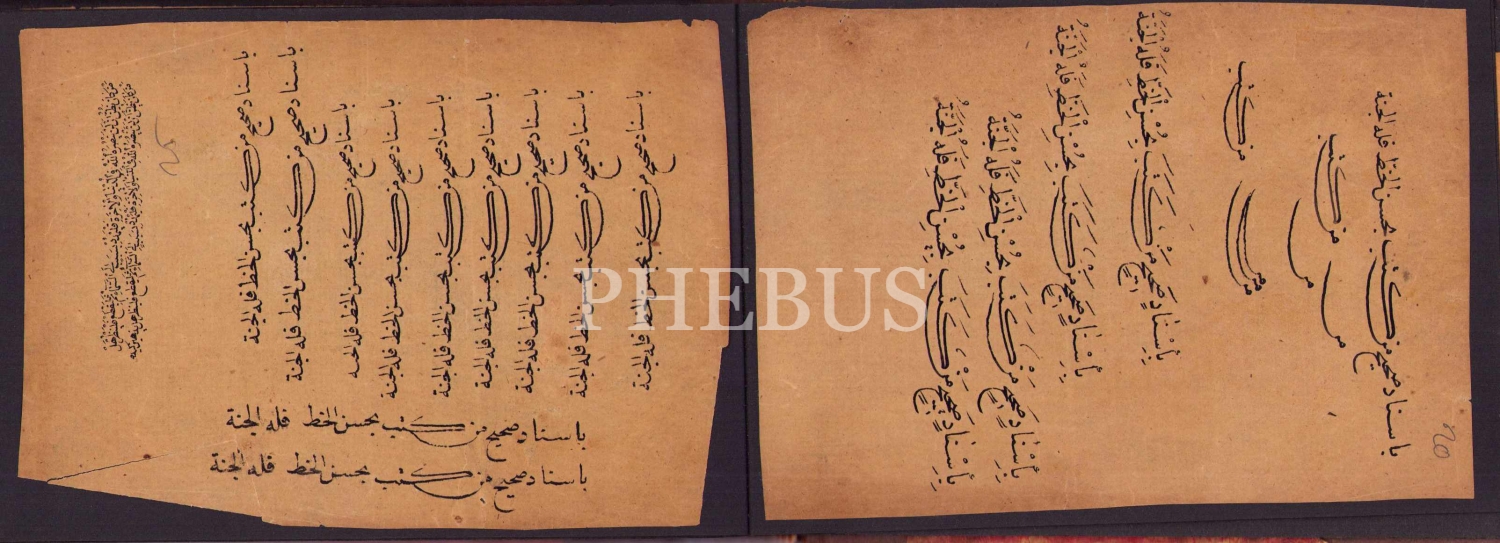 من كان يظن ان لن ينصره الله في الدنيا والاخرة فليمدد بسبب الى السماء ثم ليقطع فلينظر هل
باسناد صحيح من كتب بحسن الخط فله الجنة
باسناد صحيح من كتب بحسن الخط فله الجنة
باسناد صحيح من كتب بحسن الخط فله الجنة
باسناد صحيح من كتب بحسن الخط فله الجنة
باسناد صحيح من كتب بحسن الخط فله الجنة
باسناد صحيح من كتب بحسن الخط فله الجنة
باسناد صحيح من كتب بحسن الخط فله الجنة
باسناد صحيح من كتب بحسن الخط فله الجنة
باسناد صحيح من كتب بحسن الخط فله الجنة
باسناد صحيح من كتب بحسن الخط فله الجنة
باسناد صحيح من كتب بحسن الخط فله الجنة
بِاِسْنَادٍ صَحِيحٍ مَنْ كَتَبَ بِحُسْنِ الْخَطِّ فَلَهُ الْجَنَّةُ
بِاِسْنَادٍ صَحِيحٍ مَنْ كَتَبَ بِحُسْنِ الْخَطِّ فَلَهُ الْجَنَّةُ
بِاِسْنَادٍ صَحِيحٍ مَنْ كَتَبَ بِحُسْنِ الْخَطِّ فَلَهُ الْجَنَّةُ
بِاِسْنَادٍ صَحِيحٍ مَنْ كَتَبَ بِحُسْنِ الْخَطِّ فَلَهُ الْجَنَّةُ
من كتب
من
من
من كتب
باسناد صحيح من كتب بحسن الخط فله الجنة
PHEBUS